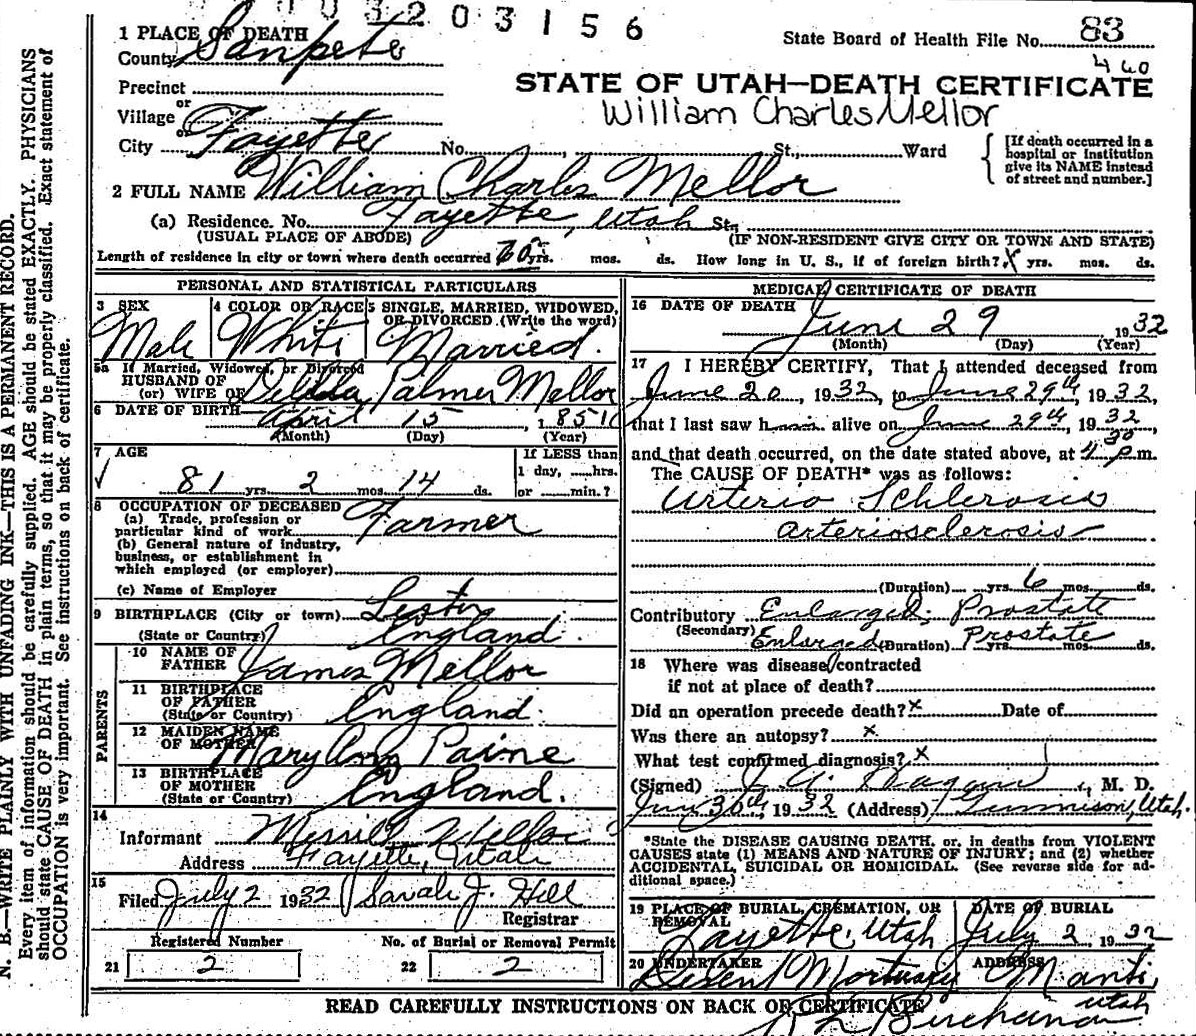 003203156
State Board of Health File No. 83
460
STATE OF UTAH—DEATH CERTIFICATE
William Charles Mellor
1 PLACE OF DEATH
County Sanpete
Precinct
or
Village
or
City Fayette No. , St., Ward
{ [If death occurred in a hospital or institution give its NAME instead of street and number.]
2 FULL NAME William Charles Mellor
(a) Residence. No. Fayette, Utah St.
(USUAL PLACE OF ABODE) (IF NON-RESIDENT GIVE CITY OR TOWN AND STATE)
Length of residence in city or town where death occurred 70 yrs. mos. ds. How long in U. S., if of foreign birth? x yrs. mos. ds.
PERSONAL AND STATISTICAL PARTICULARS
3 SEX
Male
4 COLOR OR RACE
White
5 SINGLE, MARRIED, WIDOWED, OR DIVORCED (Write the word)
Married.
5a If Married, Widowed, or Divorced
HUSBAND OF
(or) WIFE OF Palmer Mellor
6 DATE OF BIRTH April 15, 1851
(Month) (Day) (Year)
7 AGE
√ 81 yrs. 2 mos. 14 ds.
If LESS than
1 day, hrs.
or min.?
8 OCCUPATION OF DECEASED
(a) Trade, profession or
particular kind of work Farmer
(b) General nature of industry,
business, or establishment in
which employed (or employer)
(c) Name of Employer
9 BIRTHPLACE (City or town)
(State or Country) England.
PARENTS
10 NAME OF
FATHER James Mellor
11 BIRTHPLACE
OF FATHER
(State or Country) England.
12 MAIDEN NAME
OF MOTHER Mary Ann Paine
13 BIRTHPLACE
OF MOTHER
(State or Country) England.
14
Informant Merrill Mellor
Address Fayette, Utah
15
Filed July 2 1932 Sarah J. Hill
Registrar
Registered Number
21 2
No. of Burial or Removal Permit
22 2
MEDICAL CERTIFICATE OF DEATH
16 DATE OF DEATH
June 29, 1932
(Month) (Day) (Year)
17 I HEREBY CERTIFY, That I attended deceased from
June 20, 1932, to June 29th, 1932,
that I last saw him alive on June 29th, 1932
and that death occurred, on the date stated above, at 4 30 p.m.
The CAUSE OF DEATH* was as follows:
Arterio Schlerosis
arteriosclerosis
(Duration) yrs. 6 mos. ds.
Contributory Enlarged Prostate
(Secondary) Enlarged Prostate
(Duration) yrs. mos. ds.
18 Where was disease contracted
if not at place of death?
Did an operation precede death? x Date of
Was there an autopsy? x
What test confirmed diagnosis? x
(Signed) J. A. , M. D.
June 30th, 1932 (Address) Gunnison, Utah.
*State the DISEASE CAUSING DEATH, or, in deaths from VIOLENT
CAUSES state (1) MEANS AND NATURE OF INJURY; and (2) whether
ACCIDENTAL, SUICIDAL OR HOMICIDAL. (See reverse side for ad-
ditional space.)
19 PLACE OF BURIAL, CREMATION, OR
REMOVAL
Fayette, Utah
DATE OF BURIAL
July 2, 1932
20 UNDERTAKER ADDRESS
Mortuary Manti,
Utah
READ CAREFULLY INSTRUCTIONS ON BACK OF CERTIFICATE
N. B.—WRITE PLAINLY WITH UNFADING INK—THIS IS A PERMANENT RECORD.
Every item of information should be carefully supplied. AGE should be stated EXACTLY. PHYSICIANS
should state CAUSE OF DEATH in plain terms, so that it may be properly classified. Exact statement of
OCCUPATION is very important. See instructions on back of certificate.